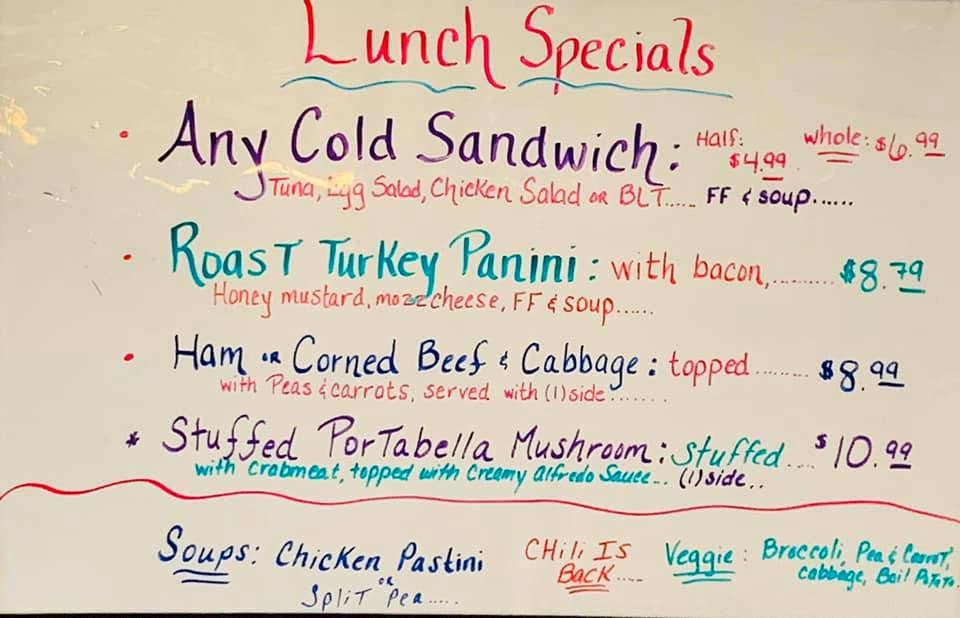 Lunch Specials
• Any Cold Sandwich: Half: $4.99 whole: $6.99
Tuna, Egg Salad, Chicken Salad OR BLT..... FF & soup......
• Roast Turkey Panini: with bacon,......... $8.79
Honey mustard, mozz cheese, FF & soup......
• Ham OR Corned Beef & Cabbage: topped......... $8.99
with Peas & carrots, served with (1) side.......
* Stuffed Portabella Mushroom: Stuffed.... $10.99
with Crabmeat, topped with Creamy Alfredo Sauce... (1) side..
Soups: Chicken Pastini
OR
Split Pea.....
CHili Is
Back.....
Veggie: Broccoli, Pea & Carrot,
cabbage, Boil Potato.